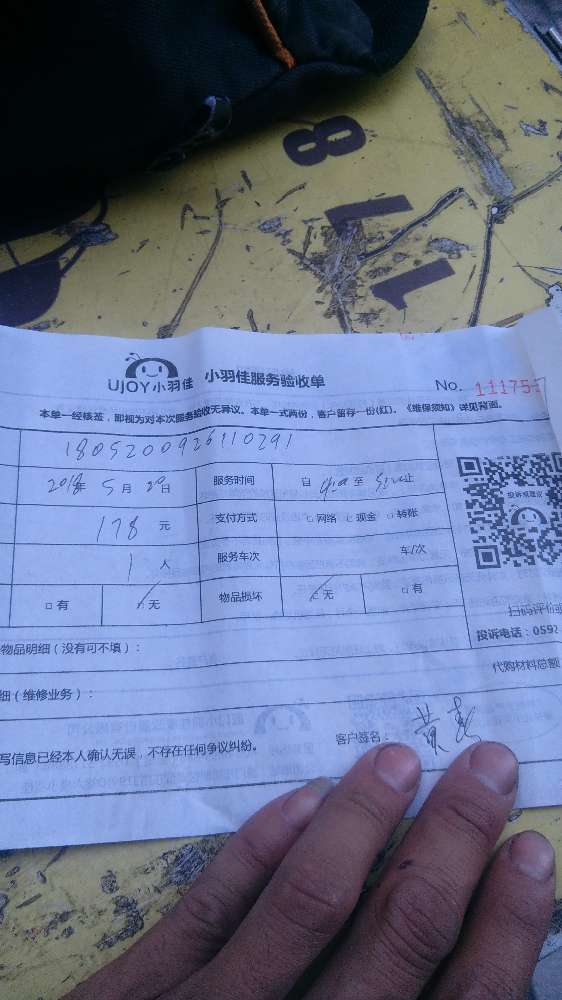 8
11
1
UJOY小羽佳 小羽佳服务验收单 No. 11175
本单一经核签，即视为对本次服务验收无异议。本单一式两份，客户留存一份(红)。《维保须知》详见背面。
1805200926110291
2018年 5月20日 服务时间 自 至 止
投诉或建议
178 元 支付方式 □网络 □现金 □转账
1 人 服务车次 车/次
□有 □无 物品损坏 □无 □有
扫码评价
物品明细（没有可不填）： 投诉电话：0592
代购材料总额
细（维修业务）：
写信息已经本人确认无误，不存在任何争议纠纷。 客户签名： 黄